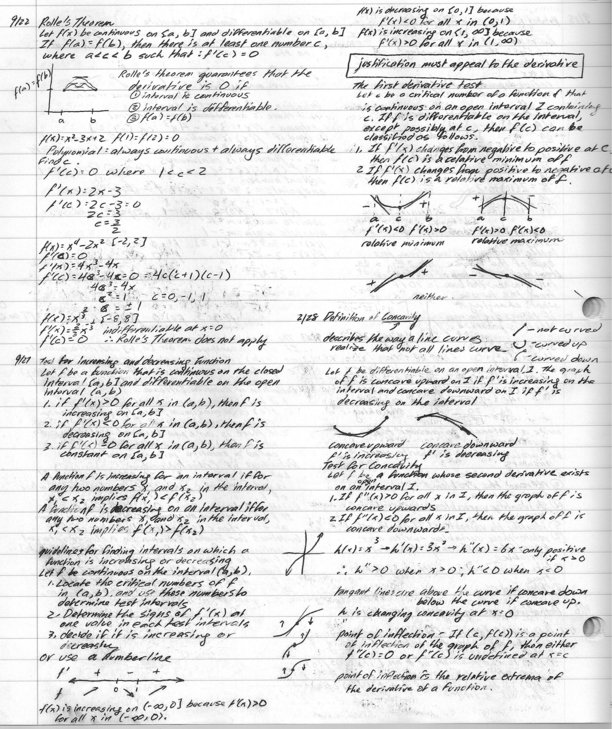 9/22 Rolle's Theorem
Let f(x) be continuous on [a, b] and differentiable on (a, b]
If f(a) = f(b), then there is at least one number c,
where a<c<b such that: f'(c) = 0
f(a)=f(b)
a b
Rolle's theorem guarantees that the
derivative is 0 if
① interval is continuous
② interval is differentiable.
③ f(a) = f(b)
f(x)=x²-3x+2 f(1)=f(2)=0
Polynomial: always continuous + always differentiable
Find c.
f'(c)=0 where 1<c<2
f'(x)=2x-3
f'(c)=2c-3=0
2c=3
c=3/2
f(x)=x⁴-2x² [-2,2]
f'(c)=0
f'(x)=4x³-4x
f'(c)=4c³-4c=0=4c(c+1)(c-1)
4c³=4c
c²=1 c=0,-1,1
c=±1
[-8,8]
indifferentiable at x=0
f'(c)=0 ∴ Rolle's Theorem does not apply
9/27 Test for increasing and decreasing function
Let f be a function that is continuous on the closed
interval [a,b] and differentiable on the open
interval (a,b)
1. if f'(x)>0 for all x in (a,b), then f is
increasing on [a,b]
2. if f'(x)<0 for all x in (a,b), then f is
decreasing on [a,b]
3. if f'(c)=0 for all x in (a,b), then f is
constant on [a,b]
A function f is increasing for an interval if for
any two numbers x₁ and x₂ in the interval,
x₁<x₂ implies f(x₁)<f(x₂)
A function f is decreasing on an interval if for
any two numbers x₁ and x₂ in the interval,
x₁<x₂ implies f(x₁)>f(x₂)
guidelines for finding intervals on which a
function is increasing or decreasing
Let f be continuous on the interval (a,b).
1. Locate the critical numbers of f
in (a,b), and use these numbers to
determine test intervals
2. Determine the signs of f'(x) at
one value in each test intervals
3. decide if it is increasing or
decreasing
or use a numberline
f' + - +
f 0 1
f(x) is increasing on (-∞,0] because f'(x)>0
for all x in (-∞,0).
f(x) is decreasing on [0,1] because
f'(x)<0 for all x in (0,1)
f(x) is increasing on [1,∞] because
f'(x)>0 for all x in (1,∞)
justification must appeal to the derivative
The first derivative test
Let c be a critical number of a function f that
is continuous on an open interval I containing
c. If f is differentiable on the interval,
except possibly at c, then f(c) can be
classified as follows.
1. If f'(x) changes from negative to positive at c,
then f(c) is a relative minimum of f
2. If f'(x) changes from positive to negative at c
then f(c) is a relative maximum of f.
- + + -
a c b a c b
f'(x)<0 f'(x)>0 f'(x)>0 f'(x)<0
relative minimum relative maximum
+ + - -
neither
2/28 Definition of Concavity
describes the way a line curves
realize that not all lines curve
- not curved
- curved up
- curved down
Let f be differentiable on an open interval, I. The graph
of f is concave upward on I if f' is increasing on the
interval and concave downward on I if f' is
decreasing on the interval
concave upward concave downward
f' is increasing f' is decreasing
Test for Concavity
Let f be a function whose second derivative exists
on an open interval I.
1. If f''(x)>0 for all x in I, then the graph of f is
concave upwards
2. If f''(x)<0 for all x in I, then the graph of f is
concave downwards.
h(x)=x³→h'(x)=3x²→h''(x)=6x-only positive
if x>0
∴ h''>0 when x>0; h''<0 when x<0
tangent lines are above the curve if concave down
below the curve if concave up.
h is changing concavity at x=0
point of inflection - If (c, f(c)) is a point
of inflection of the graph of f, then either
f''(c)=0 or f''(c) is undefined at x=c
point of inflection is the relative extrema of
the derivative of a function.